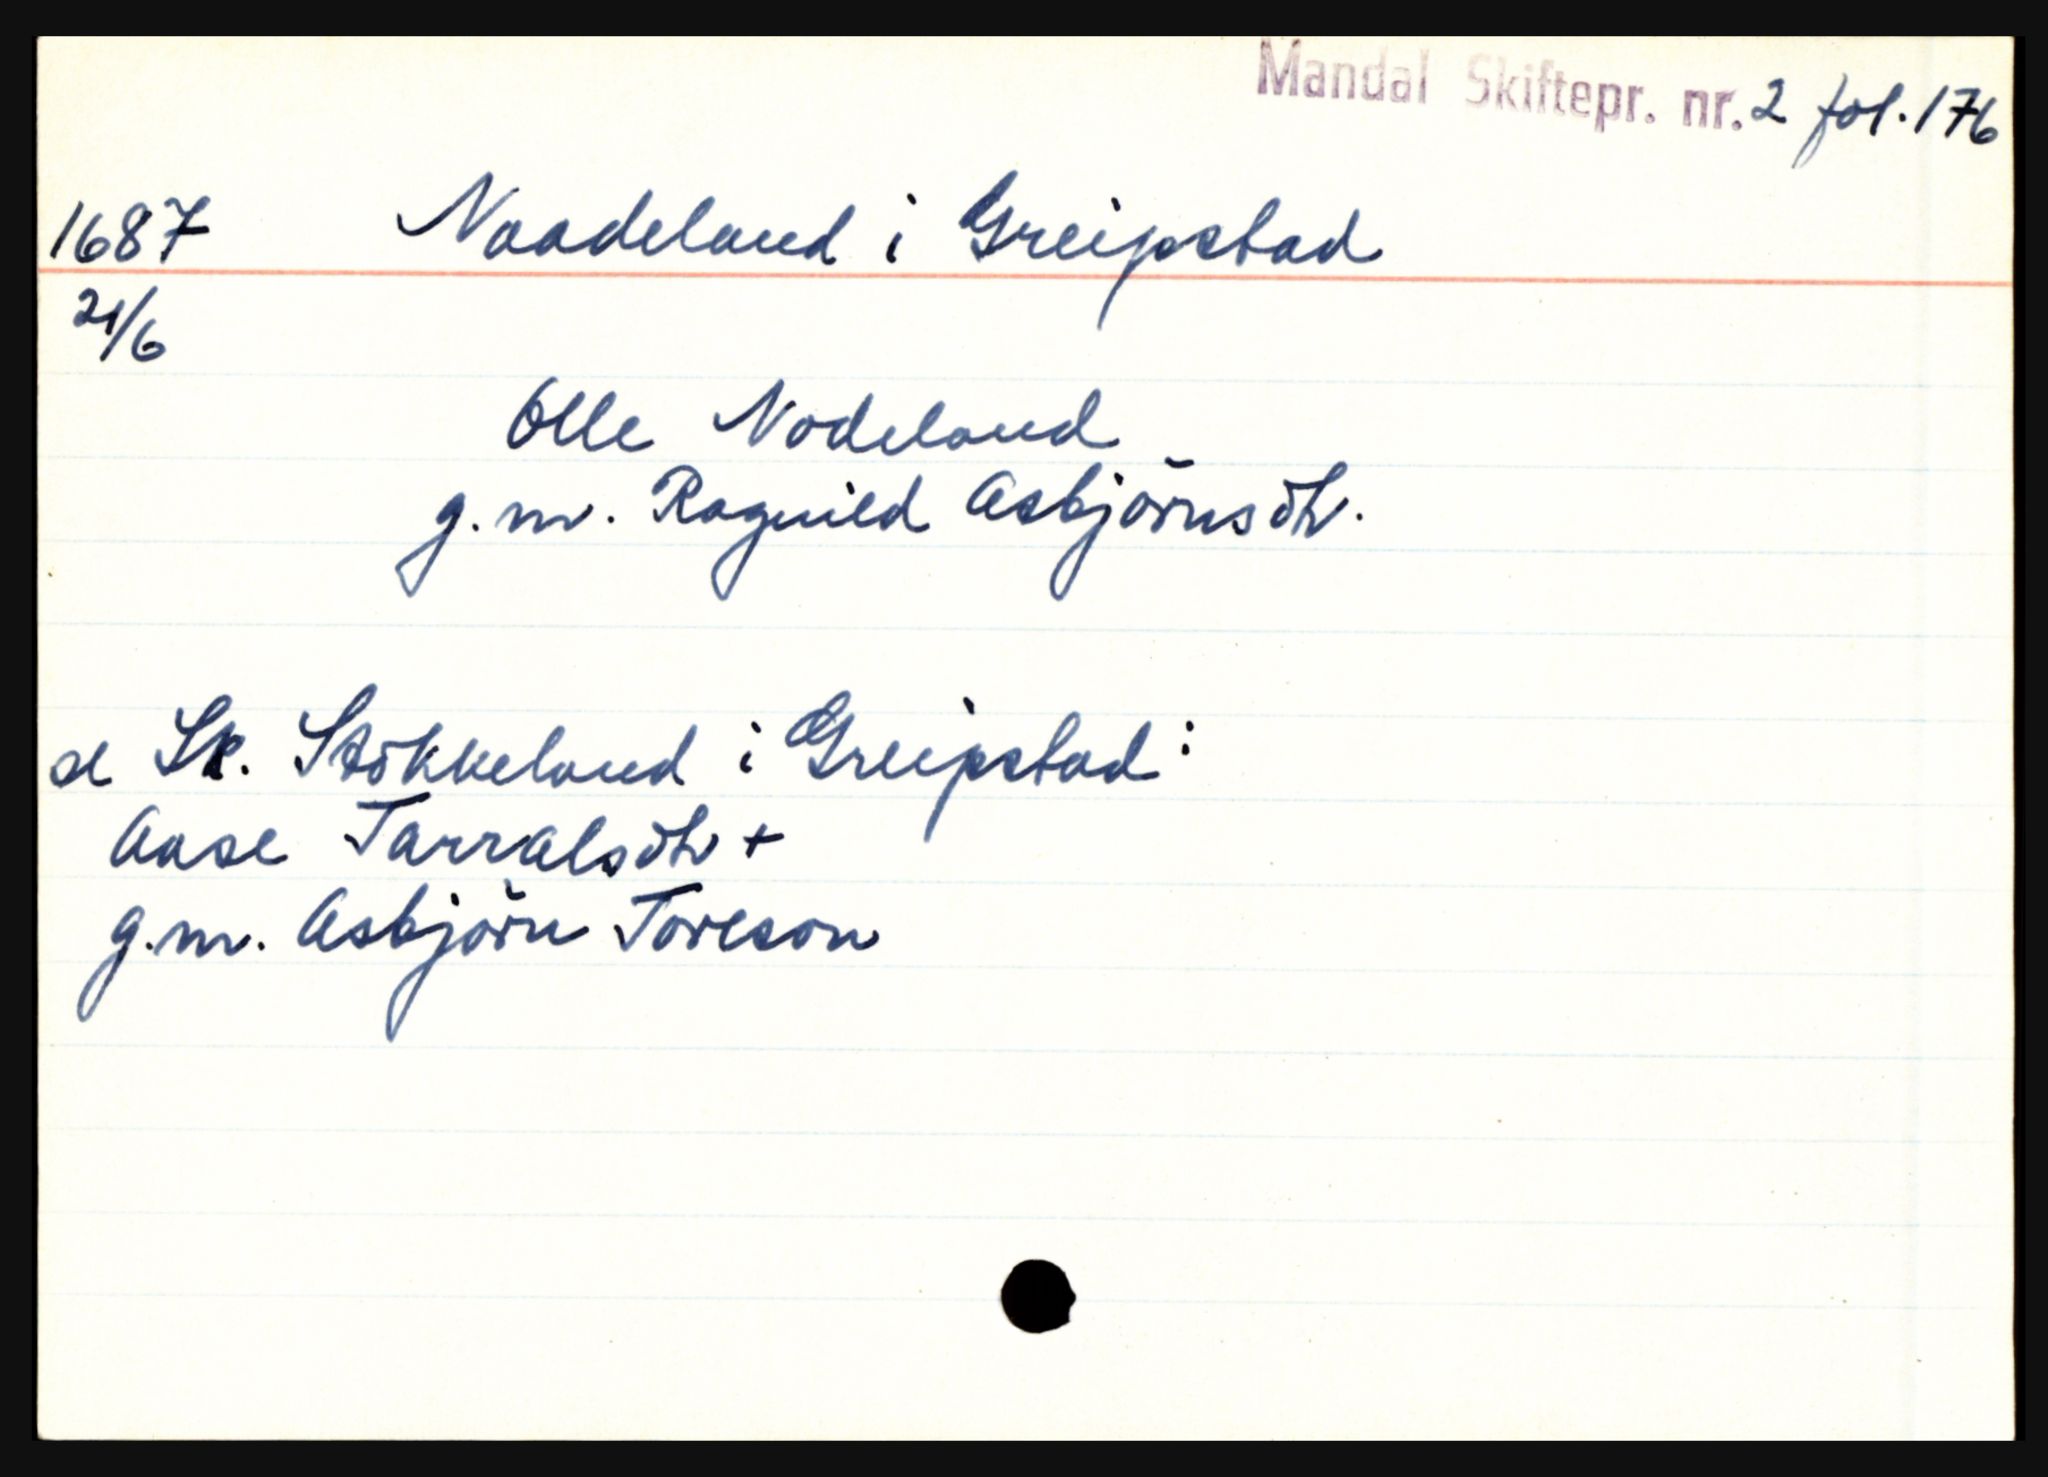 Mandal Skiftepr. nr. 2 fol. 176
1687 Naadeland i Greipstad
21/6
Olle Nodeland
g.m. Ragnild Asbjørnsdtr.
se Sk. Støkkeland i Greipstad:
Aase Tarralsdtr +
g.m. Asbjørn Toreson